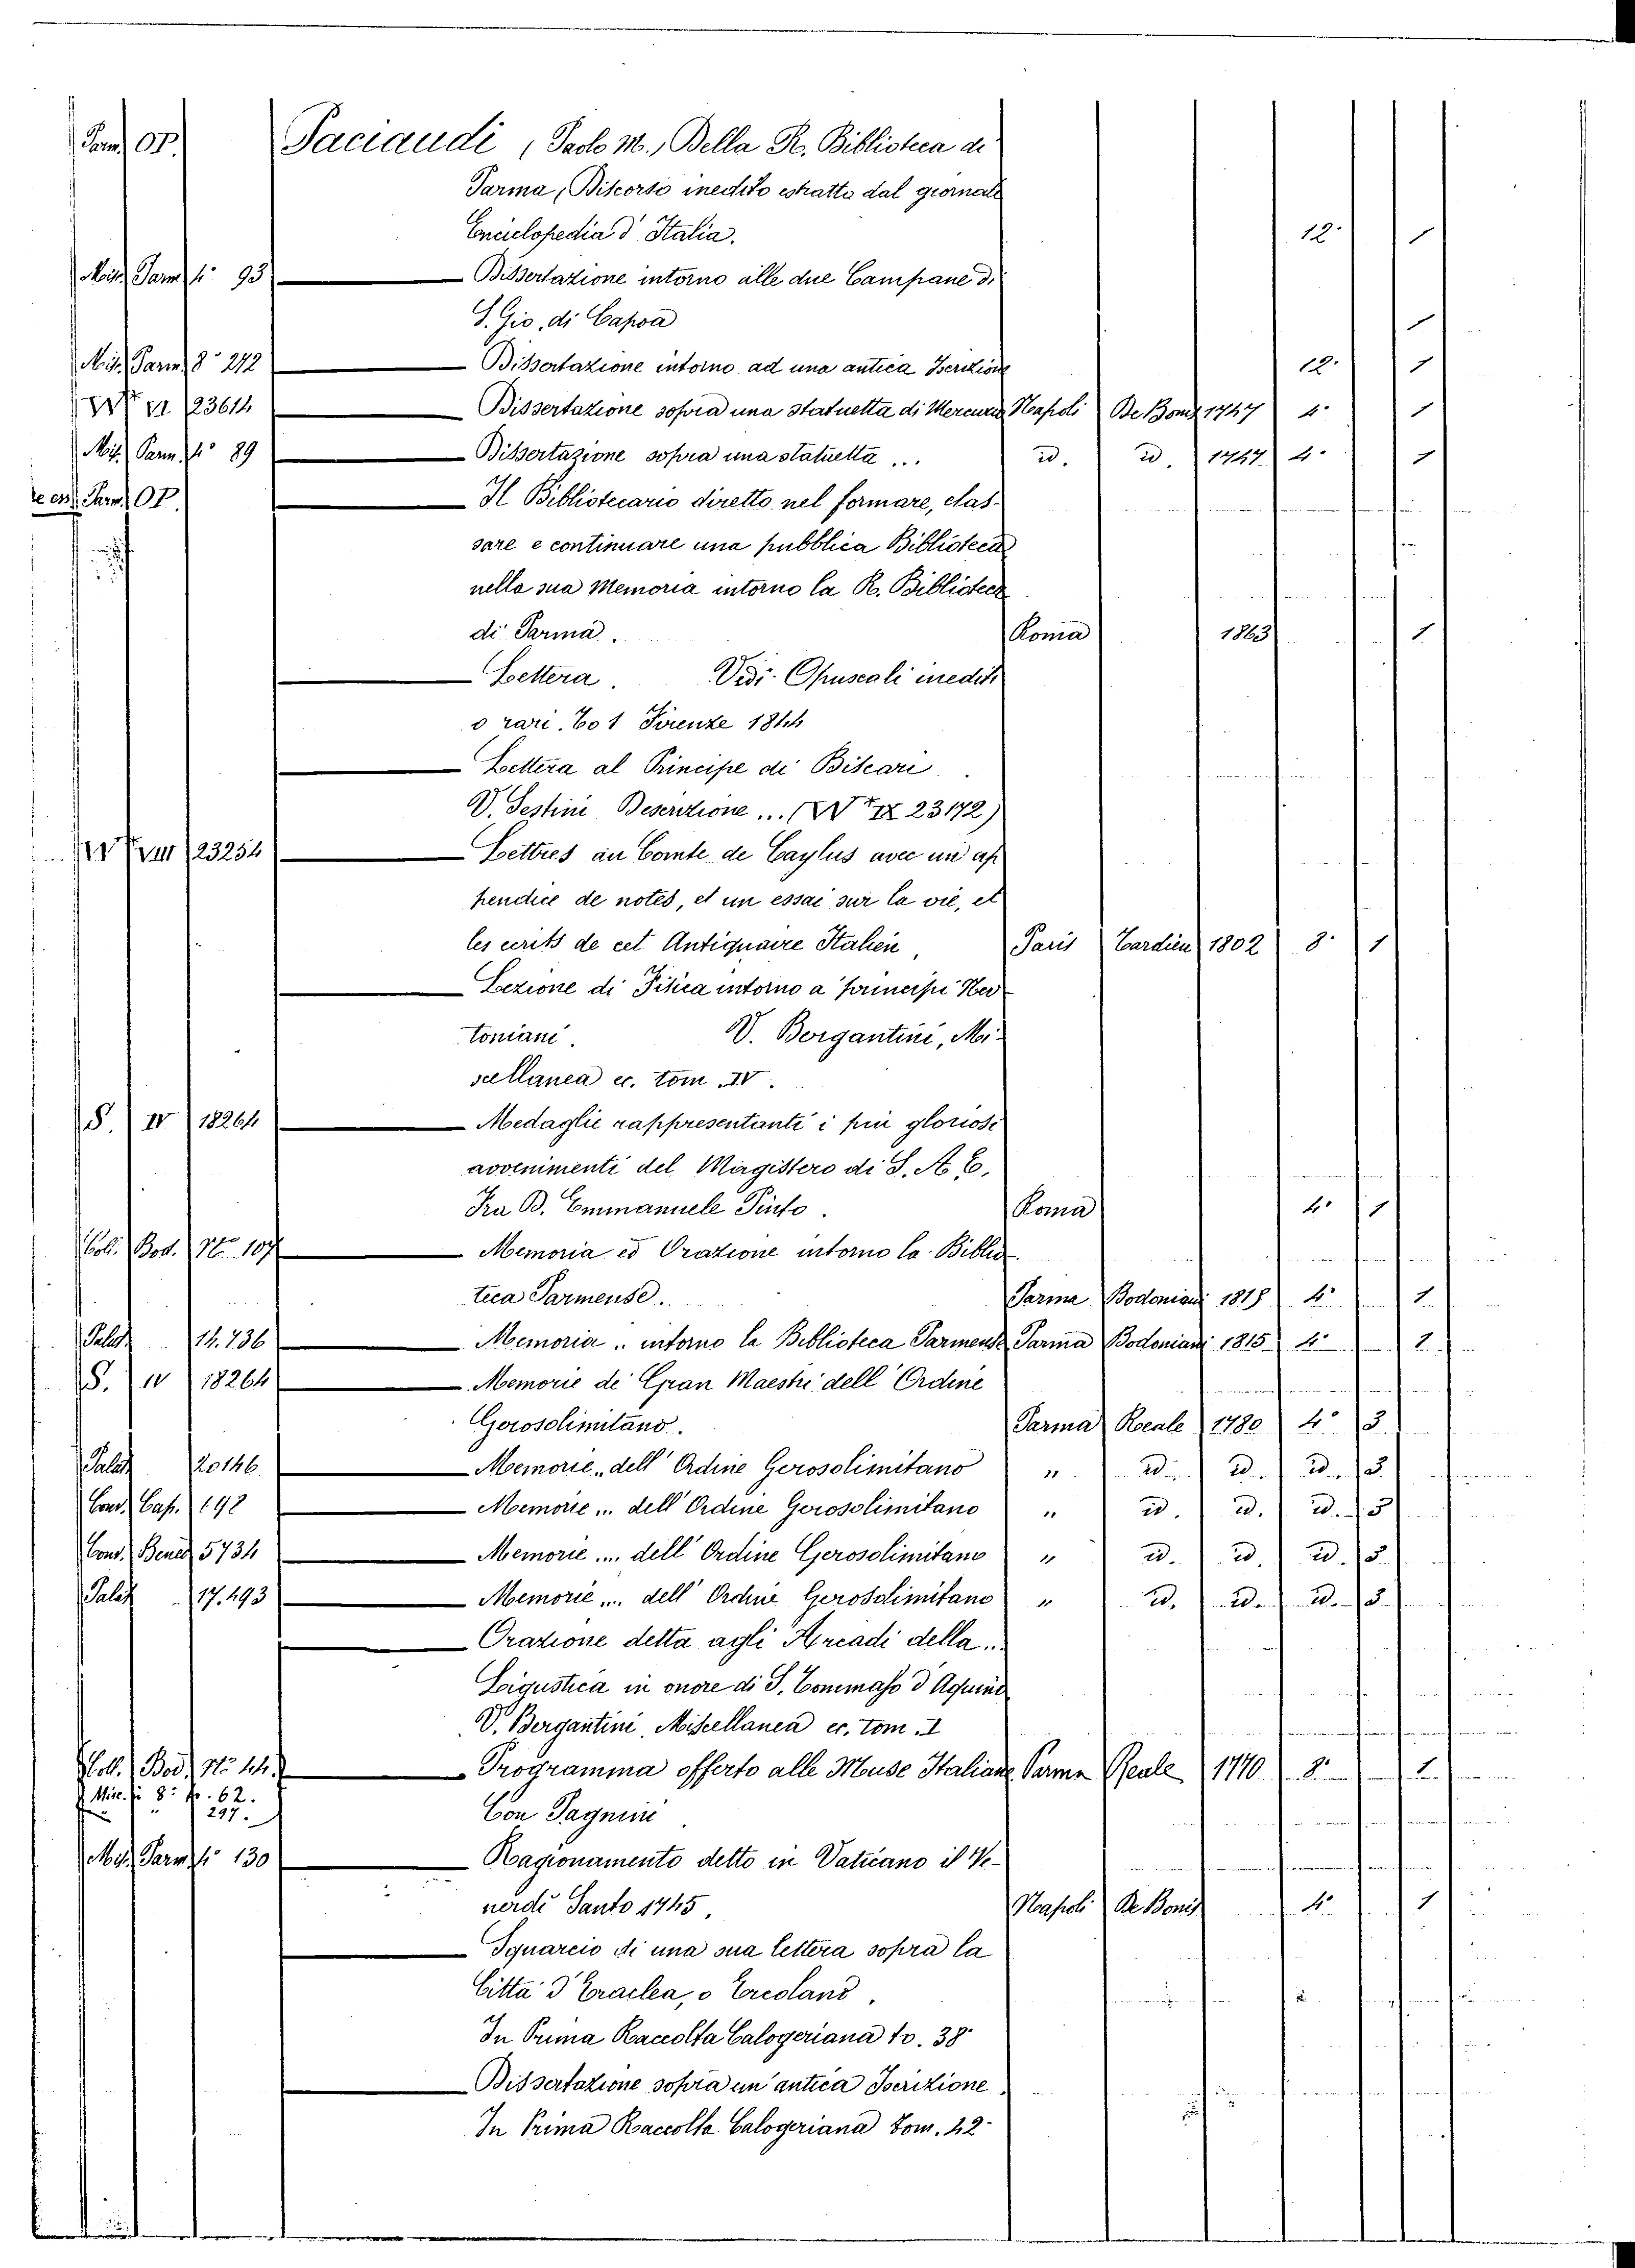 Parm. OP. Paciaudi, Paolo M., Della R. Biblioteca di
Parma, Discorso inedito estratto dal giornale
Enciclopedia d'Italia. 12° 1
Misc. Parm. 4° 93 Dissertazione intorno alle due Campane di
S. Gio. di Capoa 1
Mis. Parm. 8° 272 Dissertazione intorno ad una antica Iscrizione 12. 1
VI 23614 Dissertazione sopra una statuetta di Mercurio Napoli De Bonis 1747 4° 1
Mis. Parm. 4° 89 Dissertazione sopra una statuetta ... id. id. 1747 4° 1
Parm. OP. Il Bibliotecario diretto nel formare, clas-
sare e continuare una pubblica Biblioteca
nella sua Memoria intorno la R. Biblioteca
di Parma. Roma 1863 1
Lettera. Vedi. Opuscoli inediti
o rari. To 1 Firenze 1844
Lettera al Principe di Biscari.
V. Sestini Descrizione ... (W IX 23172)
23254 Lettres au Comte de Caylus avec un ap
pendice de notes, et un essai sur la vie, et
les ecrits de cet Antiquaire Italien, Paris Tardieu 1802 8° 1
Lezione di Fisica intorno a principi Neu
toniani. V. Bergantini, Mi-
scellanea ec. tom. IV.
S. IV 18264 Medaglie rappresentanti i più gloriosi
avvenimenti del Magistero di S. A. E.
Fra D. Emmanuele Pinto. Roma 4° 1
Col. Bod. N° 107 Memoria ed Orazione intorno la Biblio-
teca Parmense. Parma Bodoniani 1815 4° 1
Palat. 14.736 Memoria .. intorno la Biblioteca Parmense Parma Bodoniani 1815 4° 1
S. IV 18264 Memorie de' Gran Maestri dell'Ordine
Gerosolimitano. Parma Reale 1780 4° 3
Palat. 20146 Memorie .. dell'Ordine Gerosolimitano " id. id. id. 3
Cons. Cap. 198 Memorie ... dell'Ordine Gerosolimitano " id. id. id. 3
Cons. Bened. 5734 Memorie .... dell'Ordine Gerosolimitano " id. id. id. 3
Palat. 17.493 Memorie .... dell'Ordine Gerosolimitano " id. id. id. 3
Orazione detta agli Arcadi della ..
Ligustica in onore di S. Tommaso d'Aquino
V. Bergantini, Miscellanea ec. tom. I
Coll. Bod. N° 44. Programma offerto alle Muse Italiane Parma Reale 1770 8° 1
Misc. in 8° to. 62. Con Pagnini
" " 297.
Mis. Parm. 4° 130 Ragionamento detto in Vaticano il Ve-
nerdi Santo 1745. Napoli De Bonis 4° 1
Squarcio di una sua lettera sopra la
Città d'Eraclea, o Ercolano.
In Prima Raccolta Calogeriana to. 38°
Dissertazione sopra un'antica Iscrizione
In Prima Raccolta Calogeriana Tom. 42°